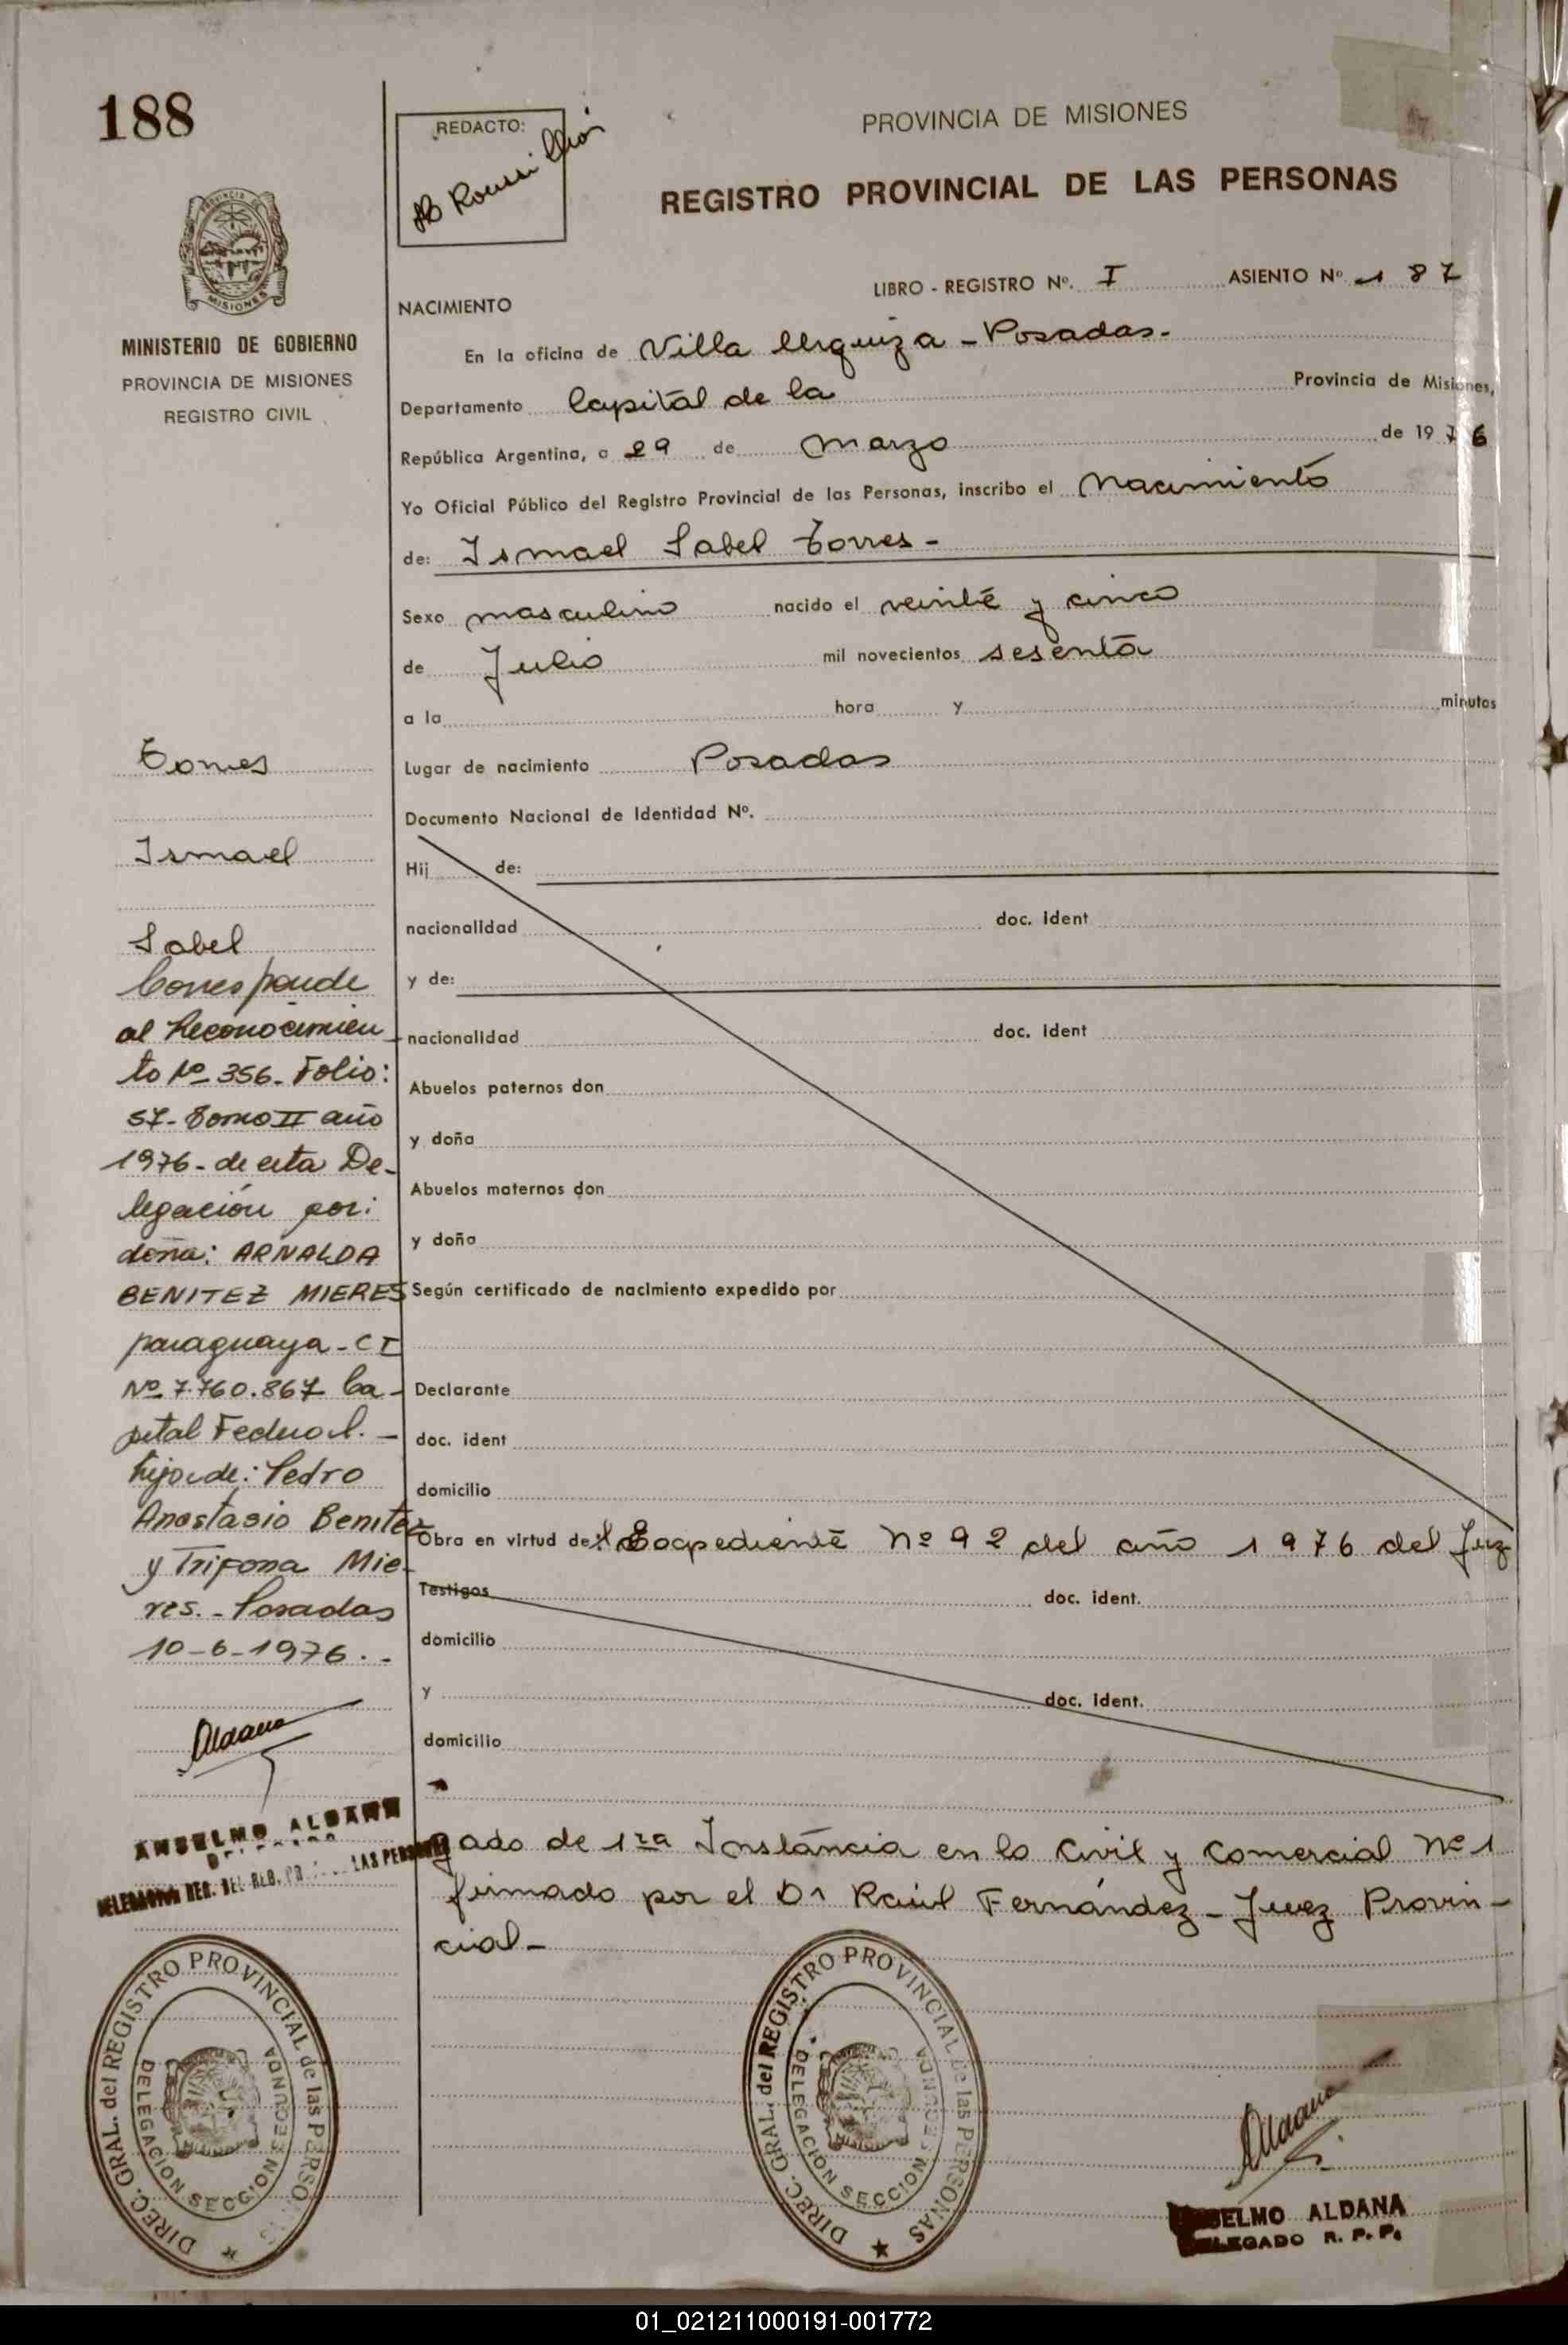 188
REDACTO:
PROVINCIA DE MISIONES
REGISTRO PROVINCIAL DE LAS PERSONAS
MISIONES
MINISTERIO DE GOBIERNO
PROVINCIA DE MISIONES
REGISTRO CIVIL
LIBRO - REGISTRO Nº. I ASIENTO Nº 187
NACIMIENTO
En la oficina de Villa Urquiza - Posadas.
Departamento Capital de la Provincia de Misiones,
República Argentina, a 29 de marzo de 1976
Yo Oficial Público del Registro Provincial de las Personas, inscribo el Nacimiento
de: Ismael Sabel Torres -
Sexo masculino nacido el veinte y cinco
de Julio mil novecientos sesenta
a la hora y minutos
Lugar de nacimiento Posadas
Documento Nacional de Identidad Nº.
Hij de:
nacionalidad doc. ident
y de:
nacionalidad doc. ident
Abuelos paternos don
y doña
Abuelos maternos don
y doña
Según certificado de nacimiento expedido por
Declarante
doc. ident
domicilio
Obra en virtud del Expediente Nº 92 del año 1976 del Juz
Testigos doc. ident.
domicilio
y doc. ident.
domicilio
gado de 1ra Instancia en lo Civil y Comercial Nº 1
firmado por el Dr Raúl Fernández - Juez Provin-
cial -
Torres
Ismael
Sabel
Corresponde
al Reconocimien
to Nº 356. Folio:
57- Tomo II año
1976- de esta De-
legación por:
doña: ARNALDA
BENITEZ MIERES
paraguaya - CI
Nº 7.760.867 Ca-
pital Federal. -
hija de: Pedro
Anastasio Benitez
y Trifona Mie-
res. - Posadas
10-6-1976. -
Aldana
ANSELMO ALDANA
LAS PERSONAS
DIREC. GRAL. del REGISTRO PROVINCIAL de las PERSO
DELEGACION SECCION SEGUNDA
DIREC. GRAL. del REGISTRO PROVINCIAL de las PERSONAS
DELEGACION SECCION SEGUNDA
Aldana
SELMO ALDANA
LEGADO R. P. P.
01_021211000191-001772